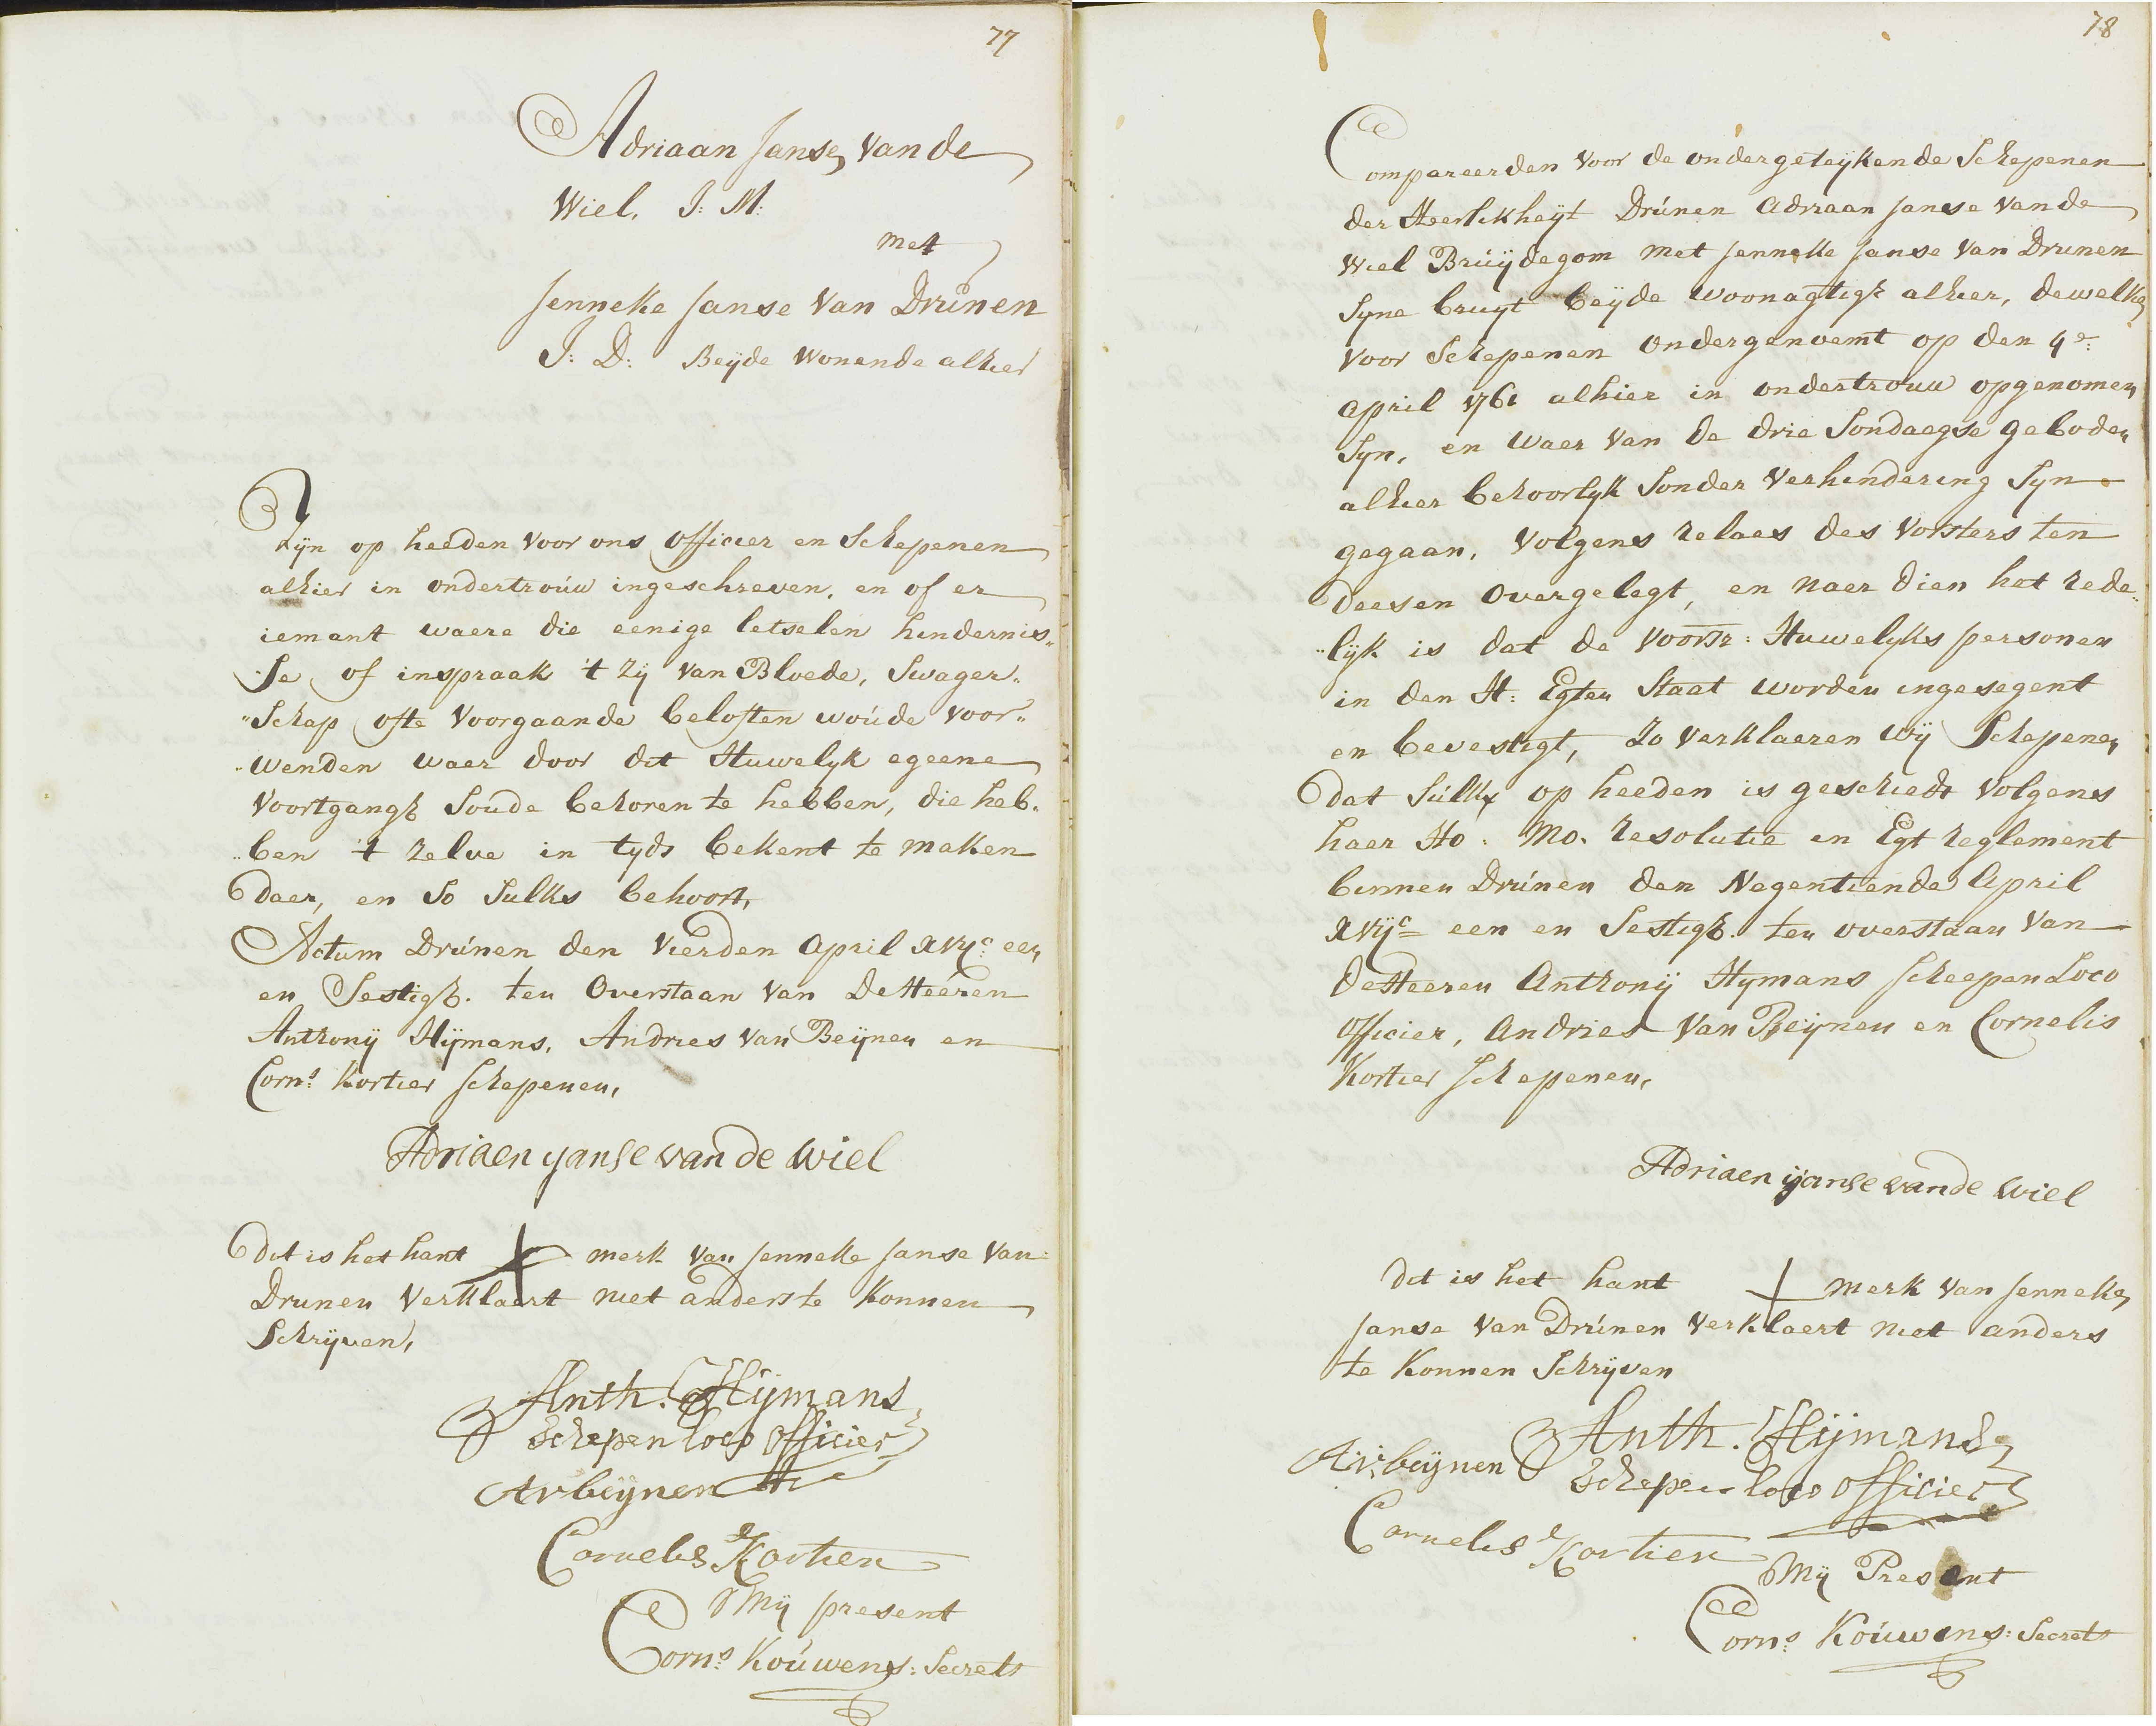 77
Adriaan Janse van de
Wiel. J: M:
met
Jenneke Janse van Drúnen
J: D: Beÿde wonende alhier
Zijn op heeden voor ons officier en Schepenen
alhier in ondertroúw ingeschreven, en of er
iemant waere die eenige letselen hindernis„
„se of inspraak 't zÿ van Bloede, Swager„
„Schap ofte voorgaande beloften woúde voor„
„wenden waer door dit Huwelyk egeene
voortgangh soude behoren te hebben, die heb„
„ben 't zelve in tyds bekent te maken
daer, en so sulks behoort,
Actum Drúnen den vierden April xvijc een
en Sestigh. ten overstaan van de Heeren
Anthonÿ Hÿmans, Andries van Beÿnen en
Corns: Kortier schepenen,
Adriaen yanse van de wiel
Dit is het hant merk van Jenneke Janse van
Drunen verklaert niet anders te konnen
Schrÿven,
Anth. Hijmans
Schepen loco officier
AvBeijnen
Cornelis Kortier
Mij present
Corns: Koúwens: Secrets
78
Compareerden voor de ondergeteÿkende Schepenen
der Heerlikheÿt Drúnen Adriaan Janse van de
Wiel Brúÿdegom met Jenneke Janse van Drunen
syne bruyt beÿde woonagtigh alhier, dewelke
voor Schepenen ondergenoemt op den 4e:
April 1761 alhier in ondertrouw opgenomen
syn, en waer van de drie Sondaegse geboden
alhier behoorlyk sonder verhindering syn
gegaan, volgens relaes des vorsters ten
deesen overgelegt, en naer dien het rede„
„lÿk is dat de voorsz: Huwelyks personen
in den H: Egten Staat worden ingesegent
en bevestigt, zo verklaeren wÿ Schepenen
dat súlkx op heeden is geschiedt volgens
haer Ho: Mo. resolutie en Egt reglement
binnen Drúnen den Negentiende April
xvijc een en Sestigh. ten overstaan van
de Heeren Anthonÿ Hymans scheepen Loco
officier, Andries van Beÿnen en Cornelis
Kortier schepenen,
Adriaen ÿanse van de wiel
Dit is het hant merk van Jenneke
Janse van Drúnen verklaert niet anders
te konnen Schrÿven
Anth. Hijmans
Schepen loco officier
AvBeijnen
Cornelis Kortier
Mij Present
Corns: Koúwens: Secrets